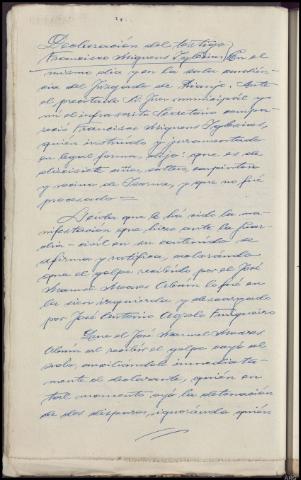 Declaración del testigo
Francisco Mignens Iglesias/ En el
mismo dia y en la sala audien-
cia del Juzgado de Ante
el presentado Sr Juez municipal y de
mi el infrascrito Secretario compa-
reció Francisco Mignens Iglesias,
quien instruido y juramentado
en legal forma, dijo: que es de
diecisiete años, soltero, carpintero
y vecino de y que no fué
procesado =
Leída que le há sido la ma-
nifestación que hizo ante la Guar-
dia civil en su contenido se
afirma y ratifica, aclarando
que el golpe recibido por el José
Manuel Albán lo fué en
la sien izquierda y descargado
por José Antonio
Que el José Manuel
Albán al recibir el golpe cayó al
suelo, auxiliándole inmediata-
mente el declarante, quién en
tal momento oyó la detonación
de dos disparos, ignorando quién